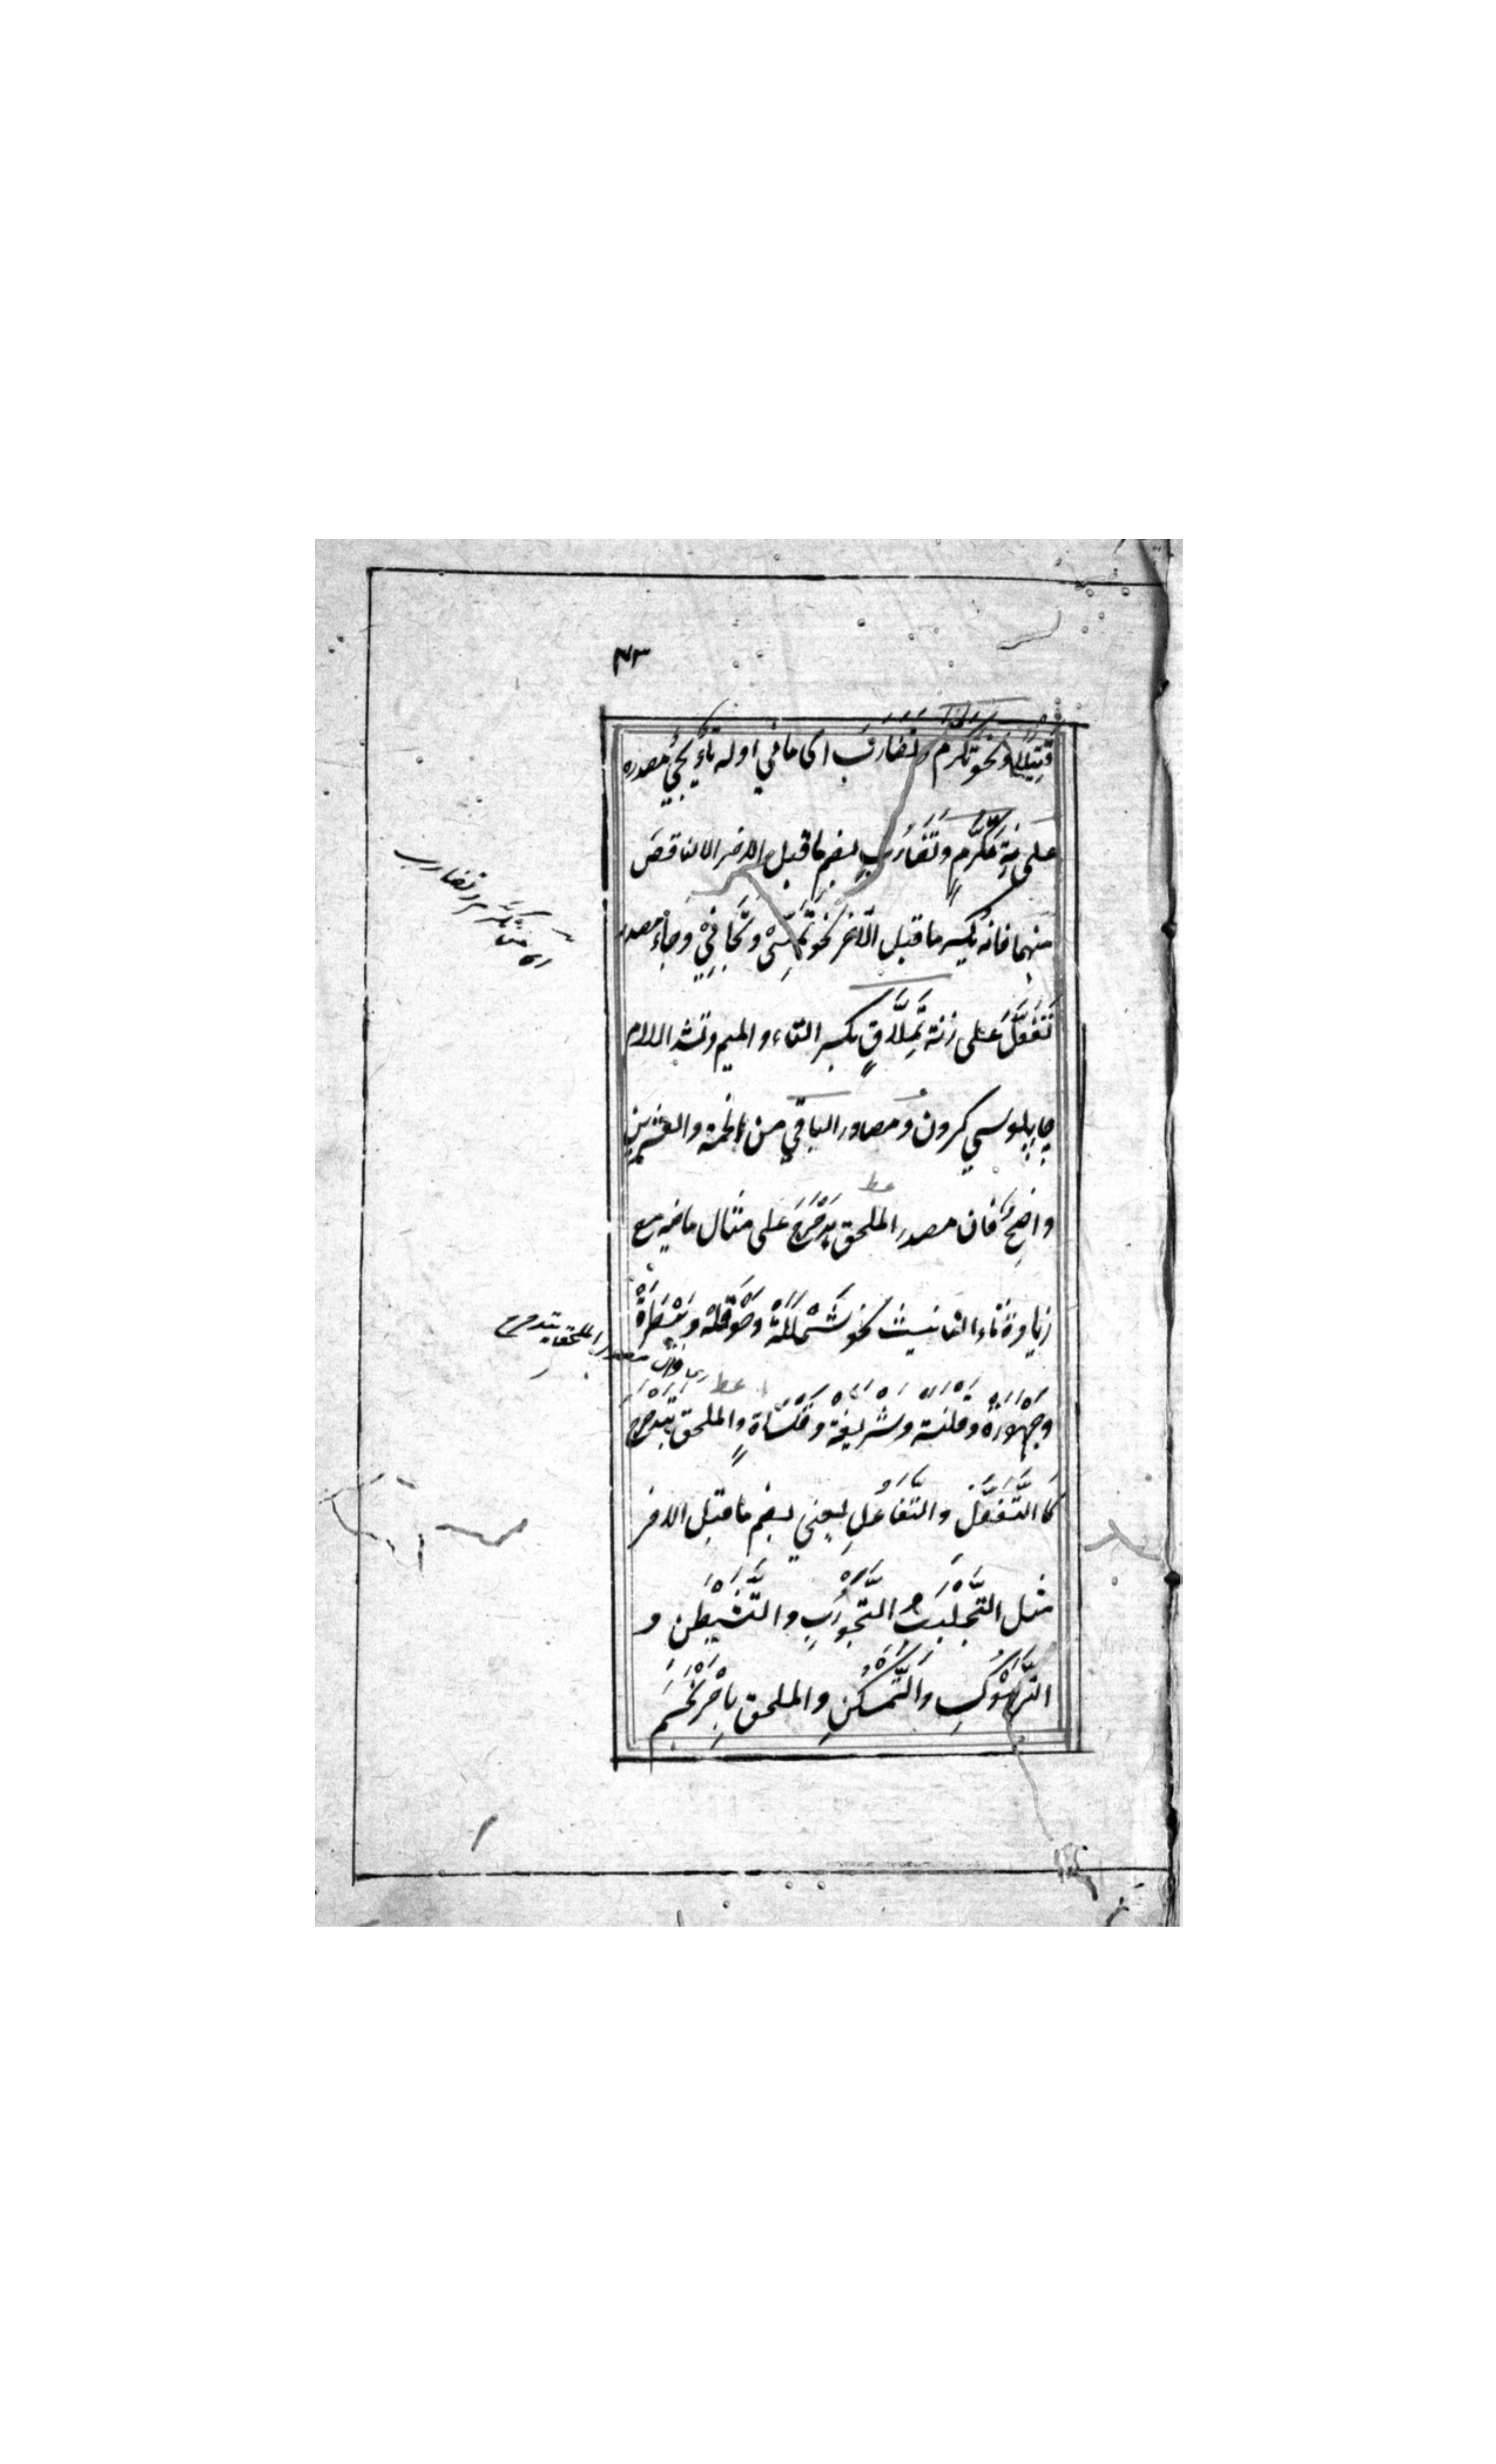 ٤٣
قِتِيلًا ونحو تكرم وتَضَارَبَ اى ما في اوله تاءٌ يجيُ مصدره
على زنة تَكَرُّمٍ وتَضَارُبٍ بضم ما قبل الاخر الا الناقصَ
منهما فانه يكسر ما قبل الآخر نحو تَمَنِّىْ وتَجَافِيْ وجاء مصدر
تَفَعَّلَ على زنة تِمِلَّاقٍ بكسر التاء والميم وتشد اللام
چاپلوسي كردن ومصادر الباقي من الخمة والعشرين
واضحٌ فان مصدر الملحق بِدَحْرَجَ على مثال ماضيه مع
زيادة تاء التانيث نحو شَمْلَلَةْ وحَوْقَلَةْ وبَيْطَرَةْ
وجَهْوَرَةْ وقلنسة وشريفة وقَلْسَاةٍ والملحق بتَدَحْرَجَ
كا التَّفَعُّل والتَّفَاعُلِ يعني بضم ما قبل الاخر
مثل التَّجَلْبُبِ والتَّجَوْرُبِ والتَّشَيْطُنِ و
التَّرَهْوُكِ والتَّمَسْكُنِ والملحق بِاحْرَنْجَمَ
اى من تكرَّم وتضارب
اى فان مصدر الملحق بتدحرج